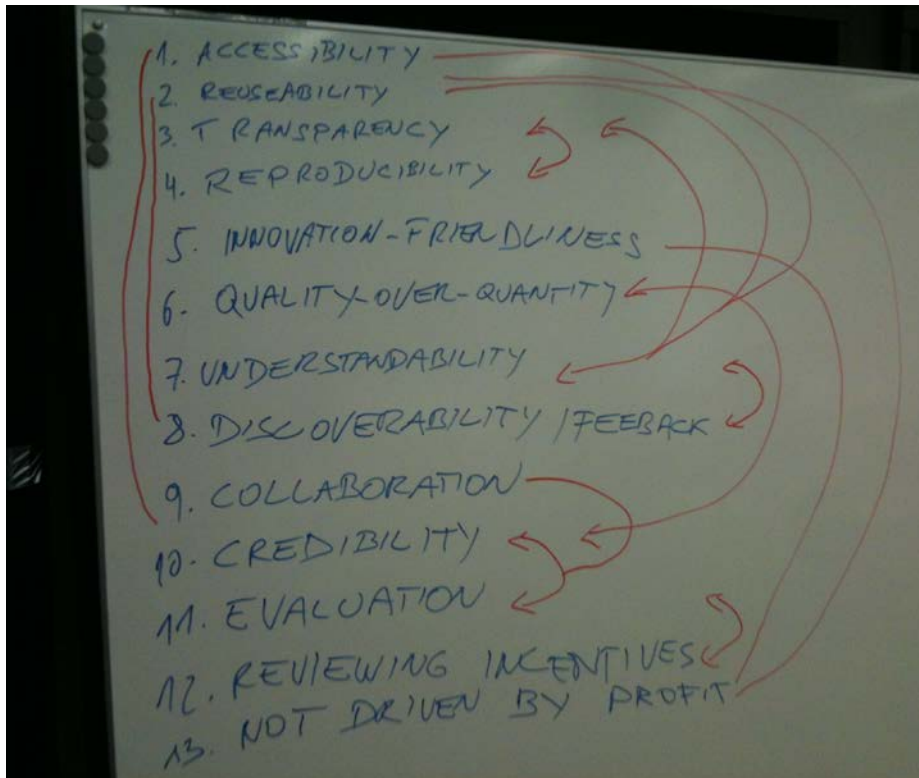 1. ACCESSIBILITY
2. REUSEABILITY
3. TRANSPARENCY
4. REPRODUCIBILITY
5. INNOVATION-FRIENDLINESS
6. QUALITY-OVER-QUANTITY
7. UNDERSTANDABILITY
8. DISCOVERABILITY / FEEBACK
9. COLLABORATION
10. CREDIBILITY
11. EVALUATION
12. REVIEWING INCENTIVES
13. NOT DRIVEN BY PROFIT